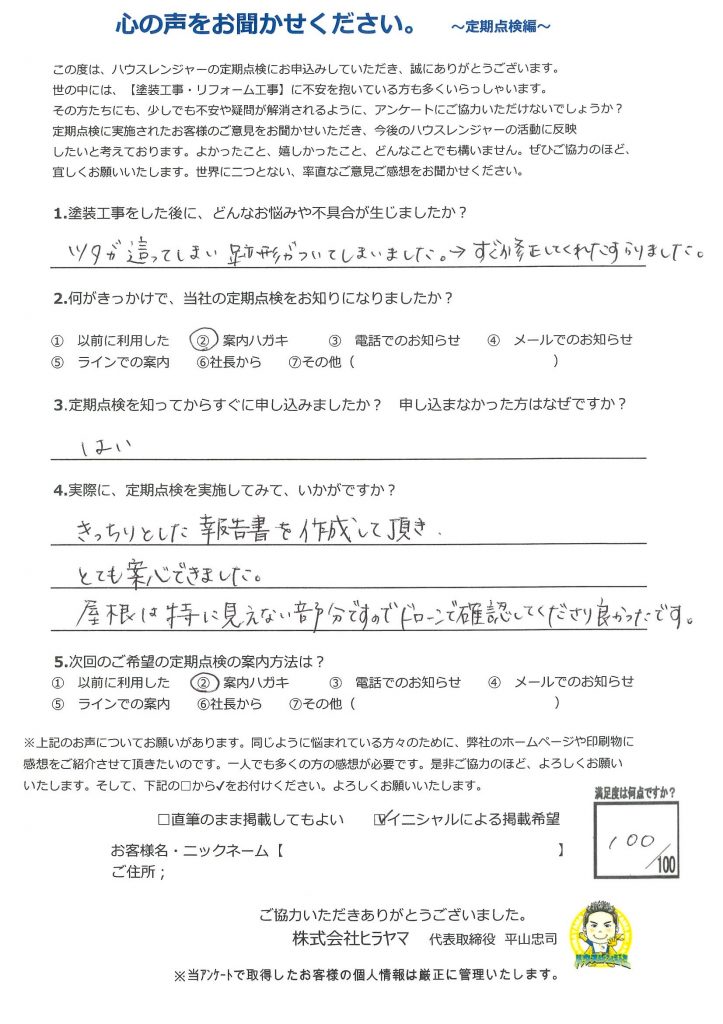 心の声をお聞かせください。 ～定期点検編～
この度は、ハウスレンジャーの定期点検にお申込みしていただき、誠にありがとうございます。
世の中には、【塗装工事・リフォーム工事】に不安を抱いている方も多くいらっしゃいます。
その方たちにも、少しでも不安や疑問が解消されるように、アンケートにご協力いただけないでしょうか？
定期点検に実施されたお客様のご意見をお聞かせいただき、今後のハウスレンジャーの活動に反映
したいと考えております。よかったこと、嬉しかったこと、どんなことでも構いません。ぜひご協力のほど、
宜しくお願いいたします。世界に二つとない、率直なご意見ご感想をお聞かせください。
1.塗装工事をした後に、どんなお悩みや不具合が生じましたか？
ツタが這ってしまい 跡形がついてしまいました。→ すぐ修正してくれたすかりました。
2.何がきっかけで、当社の定期点検をお知りになりましたか？
① 以前に利用した ② 案内ハガキ ③ 電話でのお知らせ ④ メールでのお知らせ
⑤ ラインでの案内 ⑥社長から ⑦その他（ ）
3.定期点検を知ってからすぐに申し込みましたか？ 申し込まなかった方はなぜですか？
はい
4.実際に、定期点検を実施してみて、いかがですか？
きっちりとした 報告書を作成して頂き、
とても安心できました。
屋根は特に見えない部分ですのでドローンで確認してくださり良かったです。
5.次回のご希望の定期点検の案内方法は？
① 以前に利用した ② 案内ハガキ ③ 電話でのお知らせ ④ メールでのお知らせ
⑤ ラインでの案内 ⑥社長から ⑦その他（ ）
※上記のお声についてお願いがあります。同じように悩まれている方々のために、弊社のホームページや印刷物に
感想をご紹介させて頂きたいのです。一人でも多くの方の感想が必要です。是非ご協力のほど、よろしくお願い
いたします。そして、下記の□から✓をお付けください。よろしくお願いいたします。
満足度は何点ですか？
100/100
□直筆のまま掲載してもよい ☑イニシャルによる掲載希望
お客様名・ニックネーム【 】
ご住所；
ご協力いただきありがとうございました。
株式会社ヒラヤマ 代表取締役 平山忠司
※当アンケートで取得したお客様の個人情報は厳正に管理いたします。